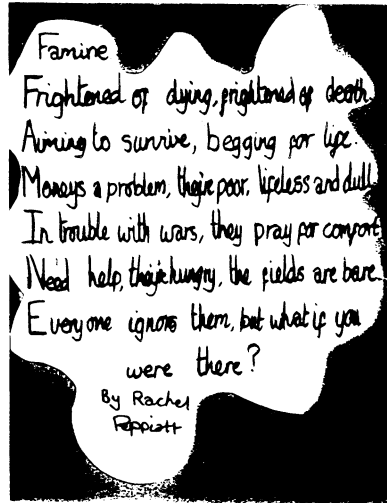 Famine
Frightened of dying, frightened of death.
Aiming to survive, begging for life.
Moneys a problem, they're poor, lifeless and dull.
In trouble with wars, they pray for comfort
Need help, they're hungry, the fields are bare.
Everyone ignors them, but what if you
were there?
By Rachel
Peppiatt